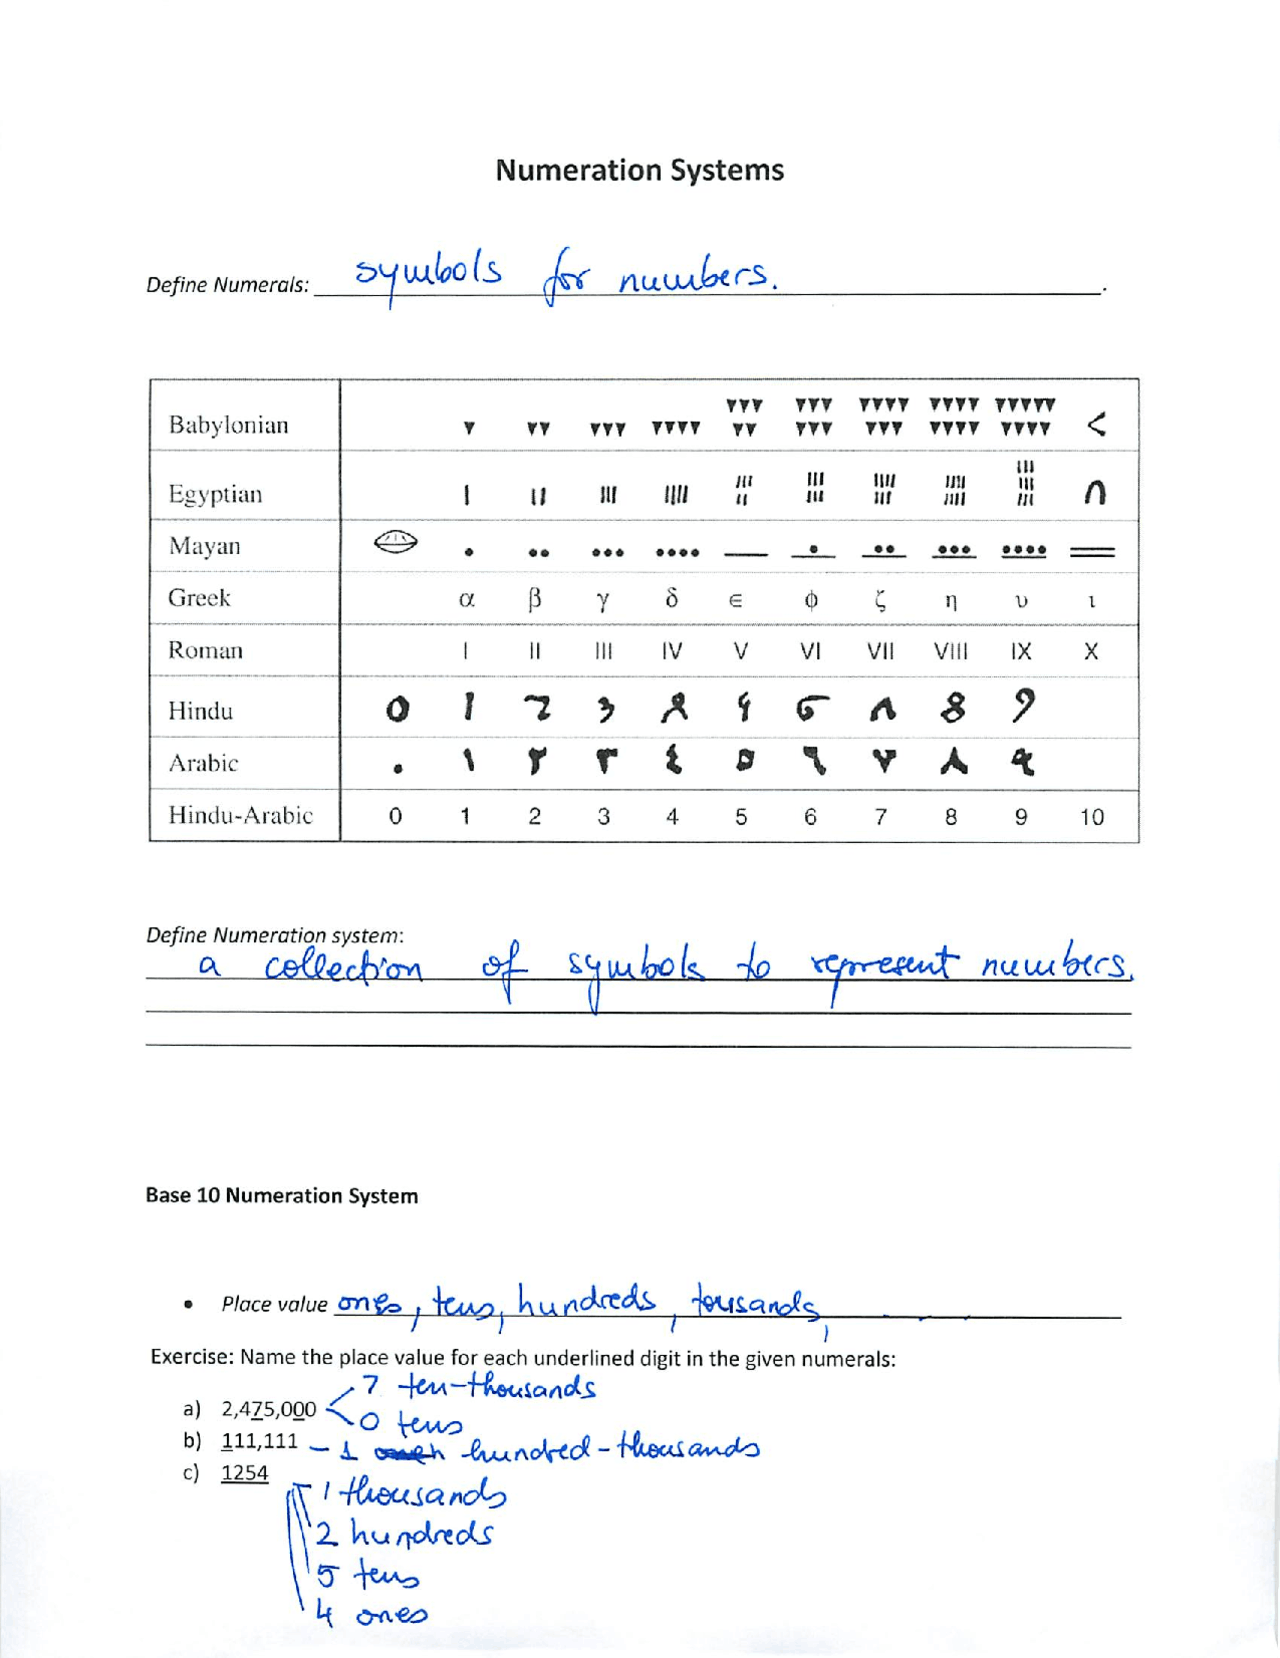 Numeration Systems
Define Numerals: symbols for numbers.
Babylonian <
Egyptian
Mayan
Greek α β γ δ ∈ ϕ ζ η υ ι
Roman I II III IV V VI VII VIII IX X
Hindu
Arabic ٠ ١ ٢ ٣ ٤ ٥ ٦ ٧ ٨ ٩
Hindu-Arabic 0 1 2 3 4 5 6 7 8 9 10
Define Numeration system:
a collection of symbols to represent numbers.
Base 10 Numeration System
• Place value ones, tens, hundreds, tousands,
Exercise: Name the place value for each underlined digit in the given numerals:
7 ten-thousands
a) 2,475,000
0 tens
b) 111,111 – 1 hundred-thousands
c) 1254
1 thousands
2 hundreds
5 tens
4 ones